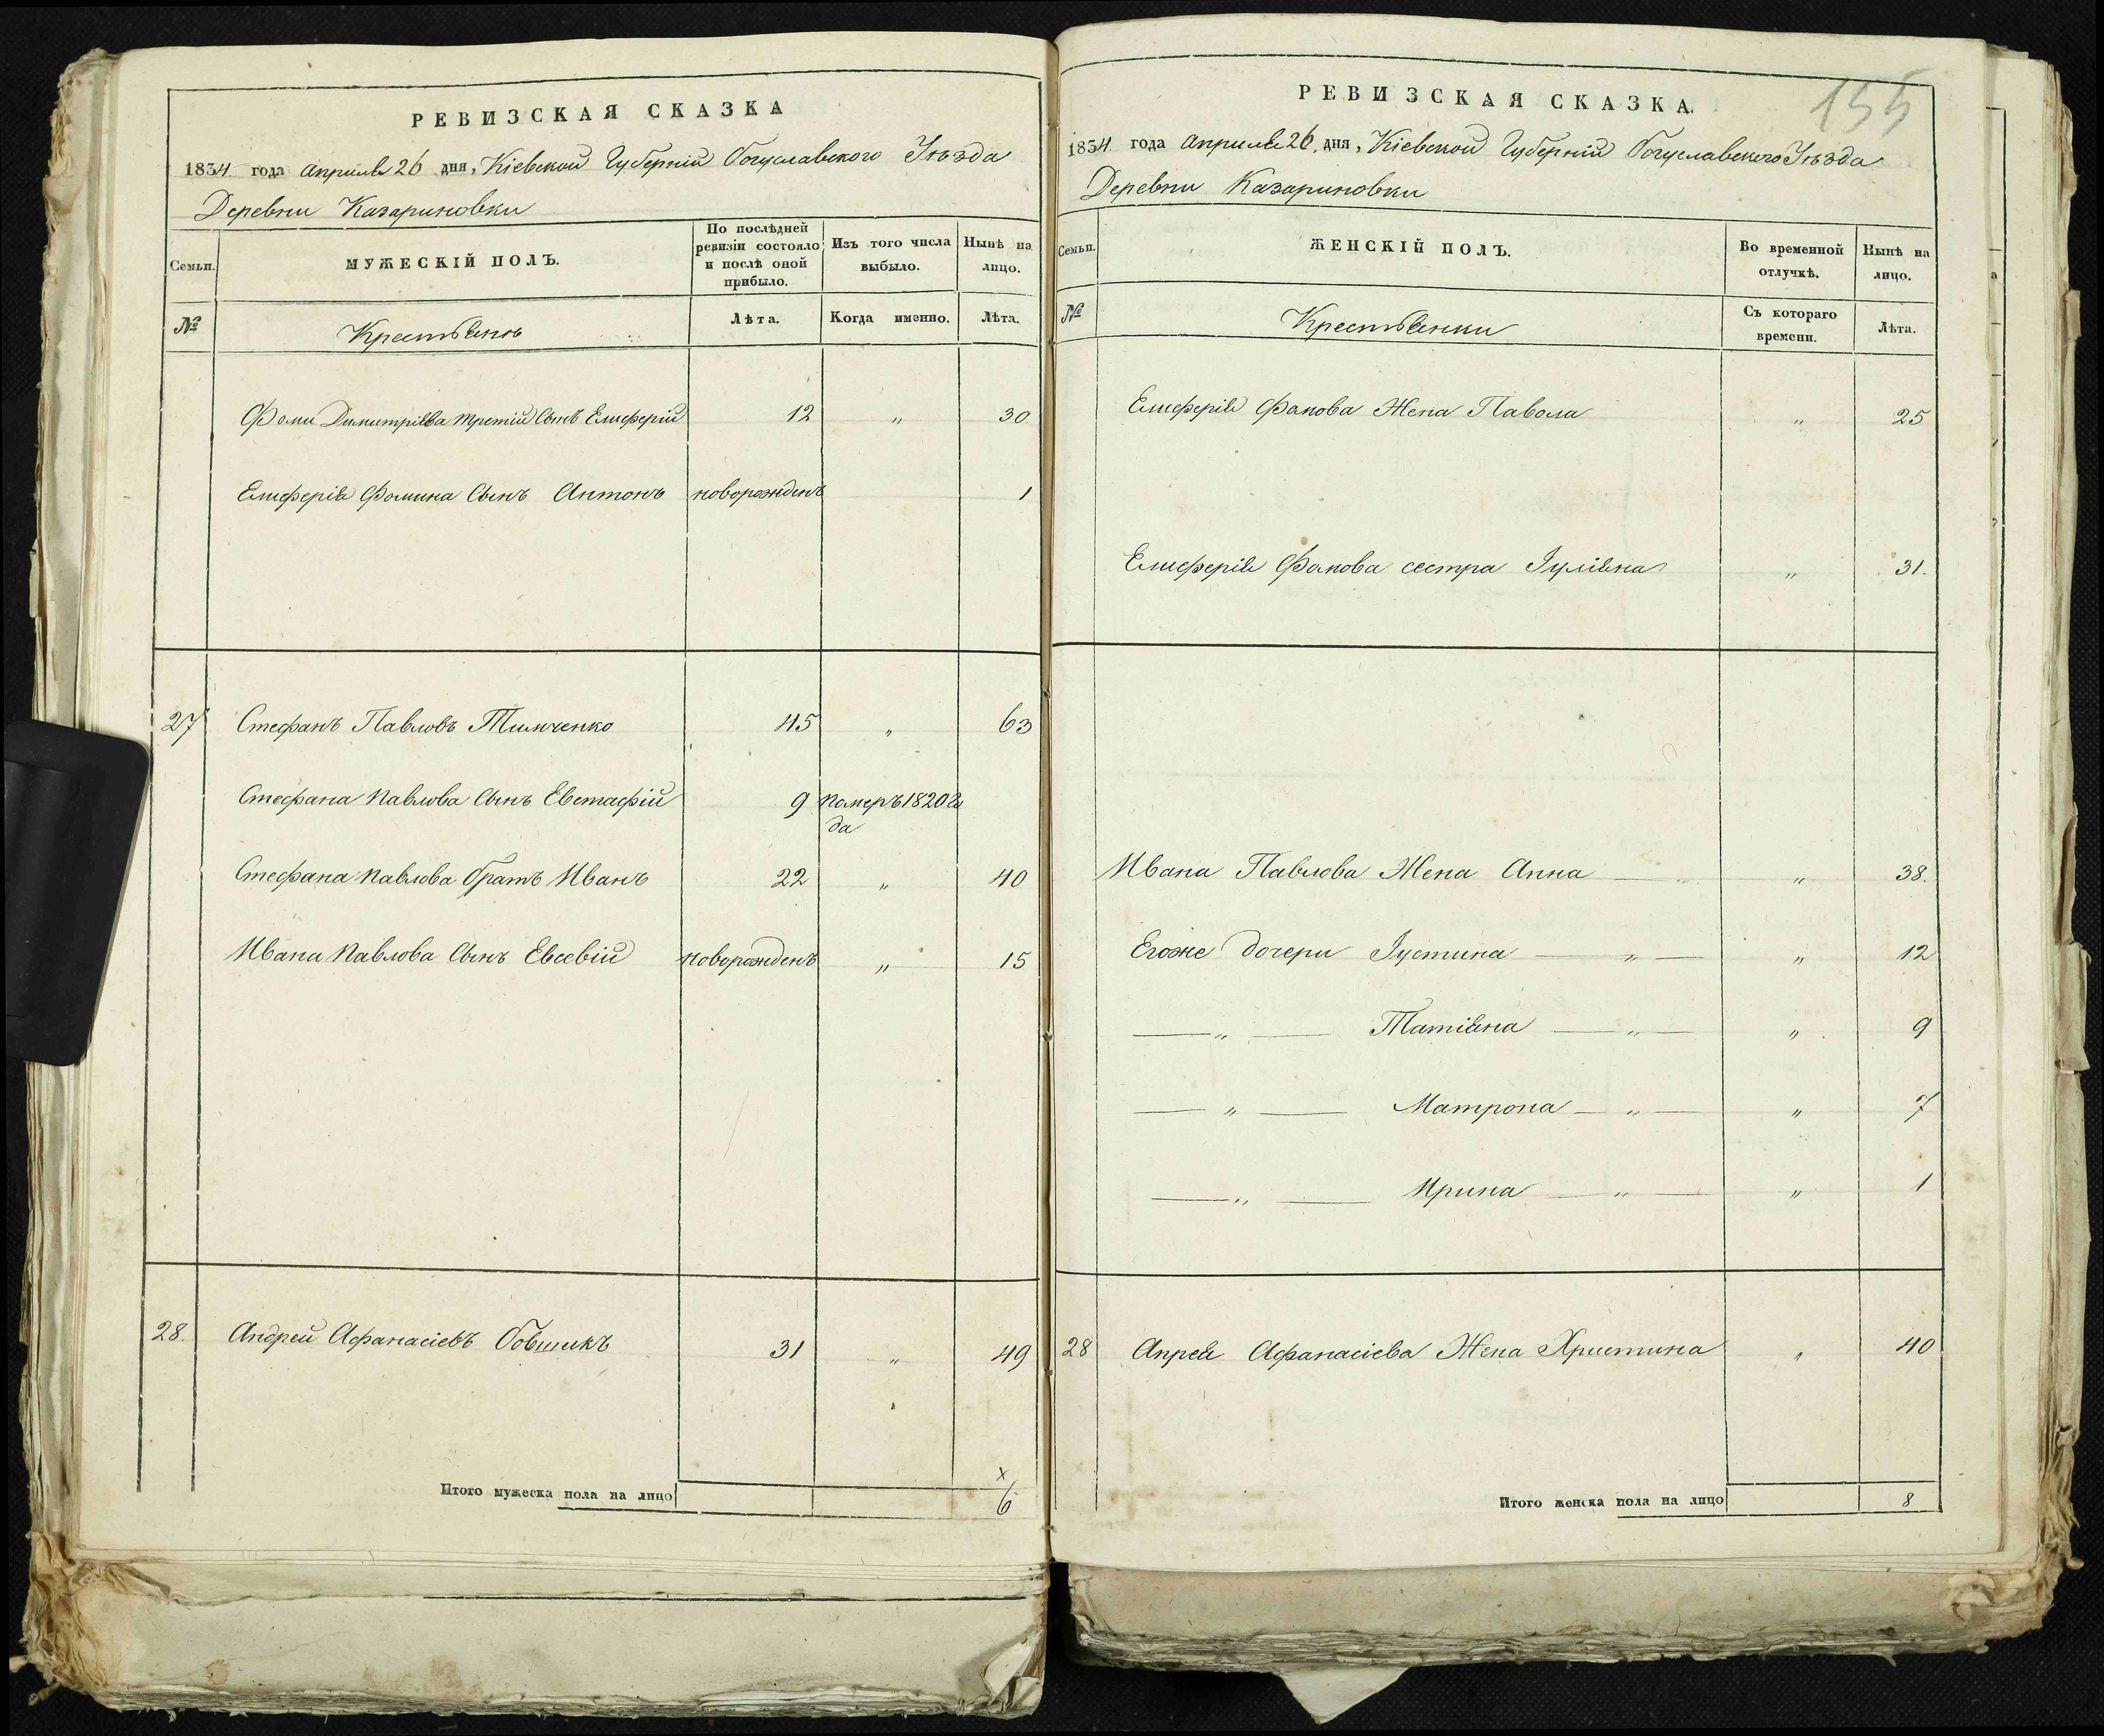 РЕВИЗСКАЯ СКАЗКА
1834 года Апреля 26 дня, Кіевской Губерніи Богуславского Уѣзда
Деревни Казариновки
Семьи.
МУЖЕСКІЙ ПОЛЪ.
По послѣдней ревизіи состояло и послѣ оной прибыло.
Изъ того числа выбыло.
Нынѣ на лицо.
№
Крестьянъ
Лѣта.
Когда именно.
Лѣта.
Фоми Димитріева третій Сынъ Елиферій 12 " 30.
Елиферія Фомина Сынъ Антонъ новорожденъ 1
27 Стефанъ Павловъ Тимченко 45 " 63
Стефана Павлова Сынъ Евстафій 9 померъ 1820 го
да
Стефана Павлова братъ Иванъ 22 " 40
Ивана Павлова Сынъ Евсевій новорожденъ " 15
28. Андрей Афанасіевъ 31 " 49
Итого мужеска пола на лицо
х
6
155
РЕВИЗСКАЯ СКАЗКА.
1834 года Апреля 26 дня, Кіевской Губерніи Богуславского Уѣзда
Деревни Казариновки
Семьи.
ЖЕНСКІЙ ПОЛЪ.
Во временной отлучкѣ.
Нынѣ на лицо.
№
Крестьянки
Съ котораго времени.
Лѣта.
Елиферія Фомова Жена Павола " 25
Елиферія Фомова сестра Іуліяна " 31.
Ивана Павлова Жена Анна — " " 38.
Егоже дочери Іустина — " — " 12
— " — Татіяна — " — " 9
— " — Матрона — " — " 7
— " — Ирина — " — " 1
28 Анрея Афанасіева Жена Христина " 40
Итого женска пола на лицо 8